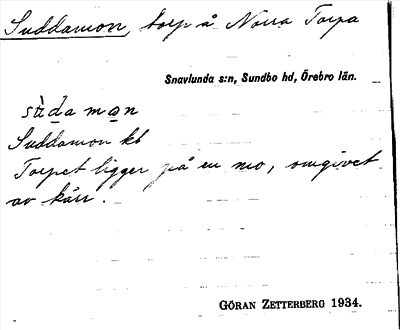 Suddamon, torp å Norra Torpa
Snavlunda s:n, Sundbo hd, Örebro län.
Suddamon kb
Torpet ligger på en mo, omgivet
av kärr.
GÖRAN ZETTERBERG 1934.